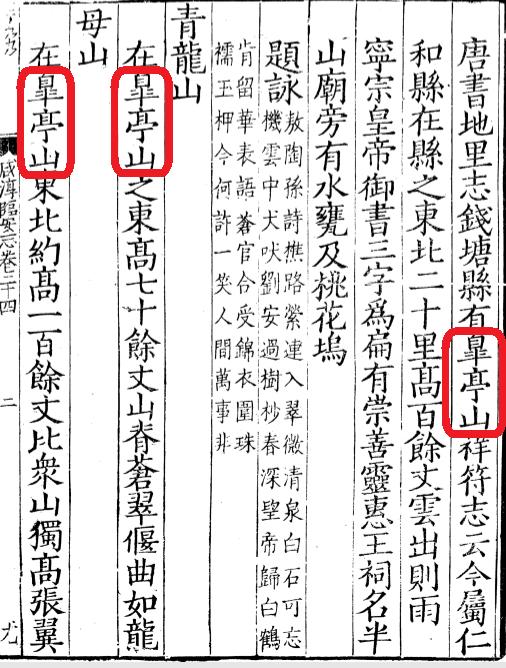 唐書地里志錢塘縣有皐亭山祥符志云今屬仁
和縣在縣之東北二十里髙百餘丈雲出則雨
寧宗皇帝御書三字爲扁有崇善靈惠王祠名半
山廟旁有水甕及桃花塢
題詠敖陶孫詩樵路縈連入翠微清泉白石可忘
機雲中犬吠劉安過樹杪春深望帝歸白鶴
肯留華表語蒼官合受錦衣圍珠
襦玉柙今何許一笑人間萬事非
青龍山
在皐亭山之東髙七十餘丈山脊蒼翠偃曲如龍
母山
在皐亭山東北約髙一百餘丈比衆山獨髙張翼
咸淳臨安志卷二十四 二 尤